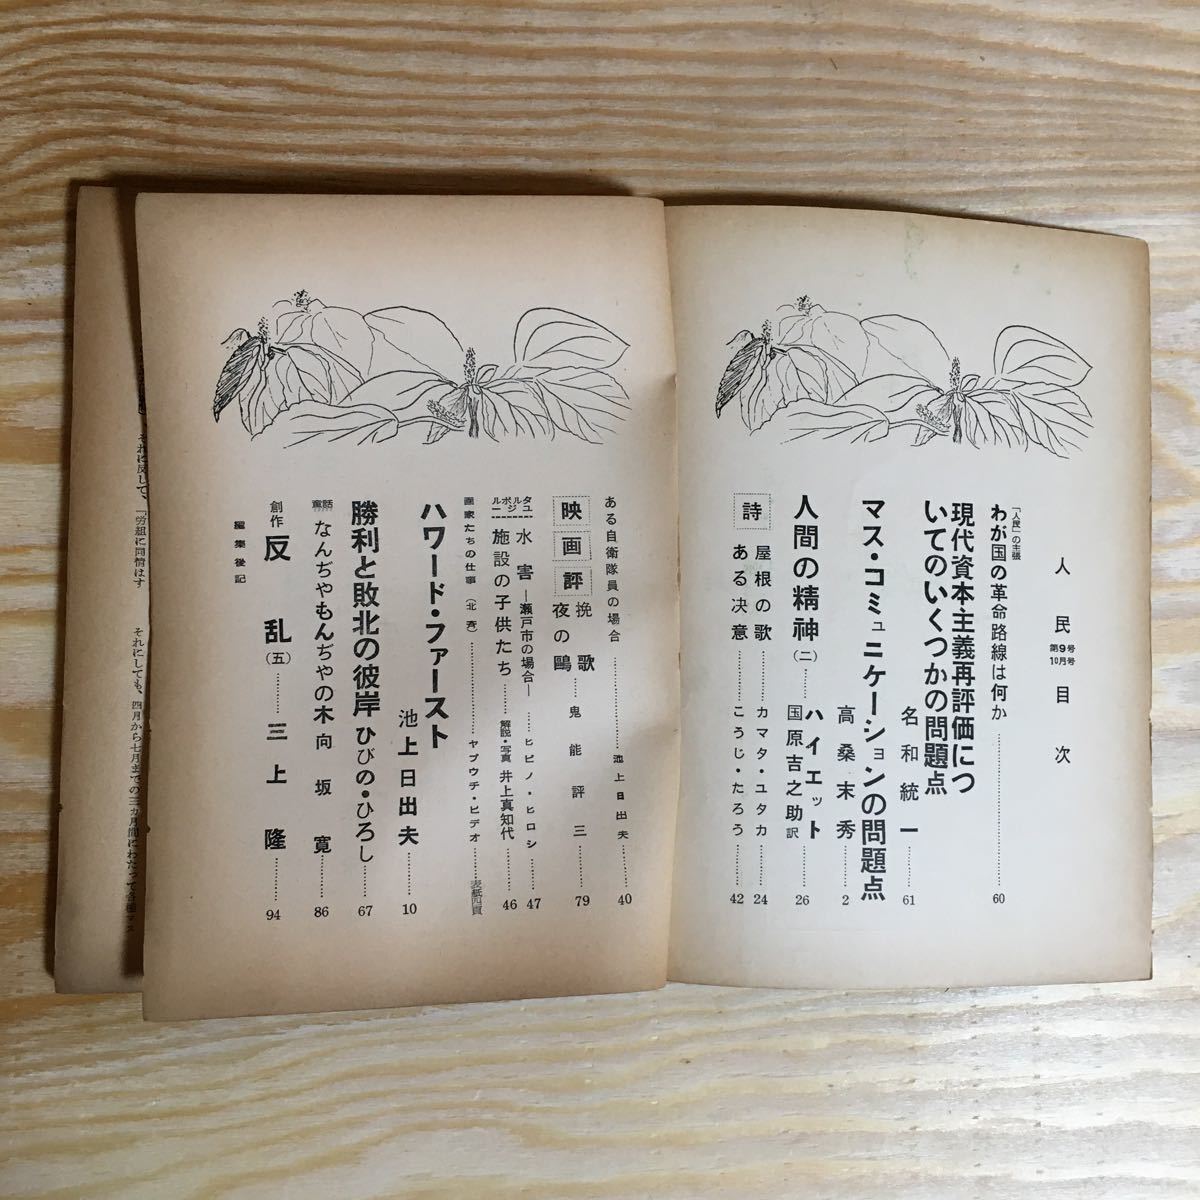 人民 第9号 10月号 目次
「人民」の主張
わが国の革命路線は何か……60
現代資本主義再評価につ
いてのいくつかの問題点
名和統一……61
マス・コミュニケーションの問題点
高桑末秀……2
人間の精神(二)
ハイエット
国原吉之助訳……26
詩
屋根の歌……カマタ・ユタカ……24
ある決意……こうじ・たろう……42
ある自衛隊員の場合……池上日出夫……40
映画評
挽歌
夜の鷗……鬼能評三……79
ルポルタージュ
水害―瀬戸市の場合―……ヒビノ・ヒロシ……47
施設の子供たち……解説・写真 井上真知代……46
画家たちの仕事(北斉)……ヤブウチ・ヒデオ……表紙四頁
ハワード・ファースト
池上日出夫……10
勝利と敗北の彼岸 ひびの・ひろし……67
童話 なんぢやもんぢやの木 向坂寛……86
創作 反乱(五)……三上隆……94
編集後記
それにしても、四月から七月までの三カ月間にわたって各種マス
それに反して、「労組に同情はす